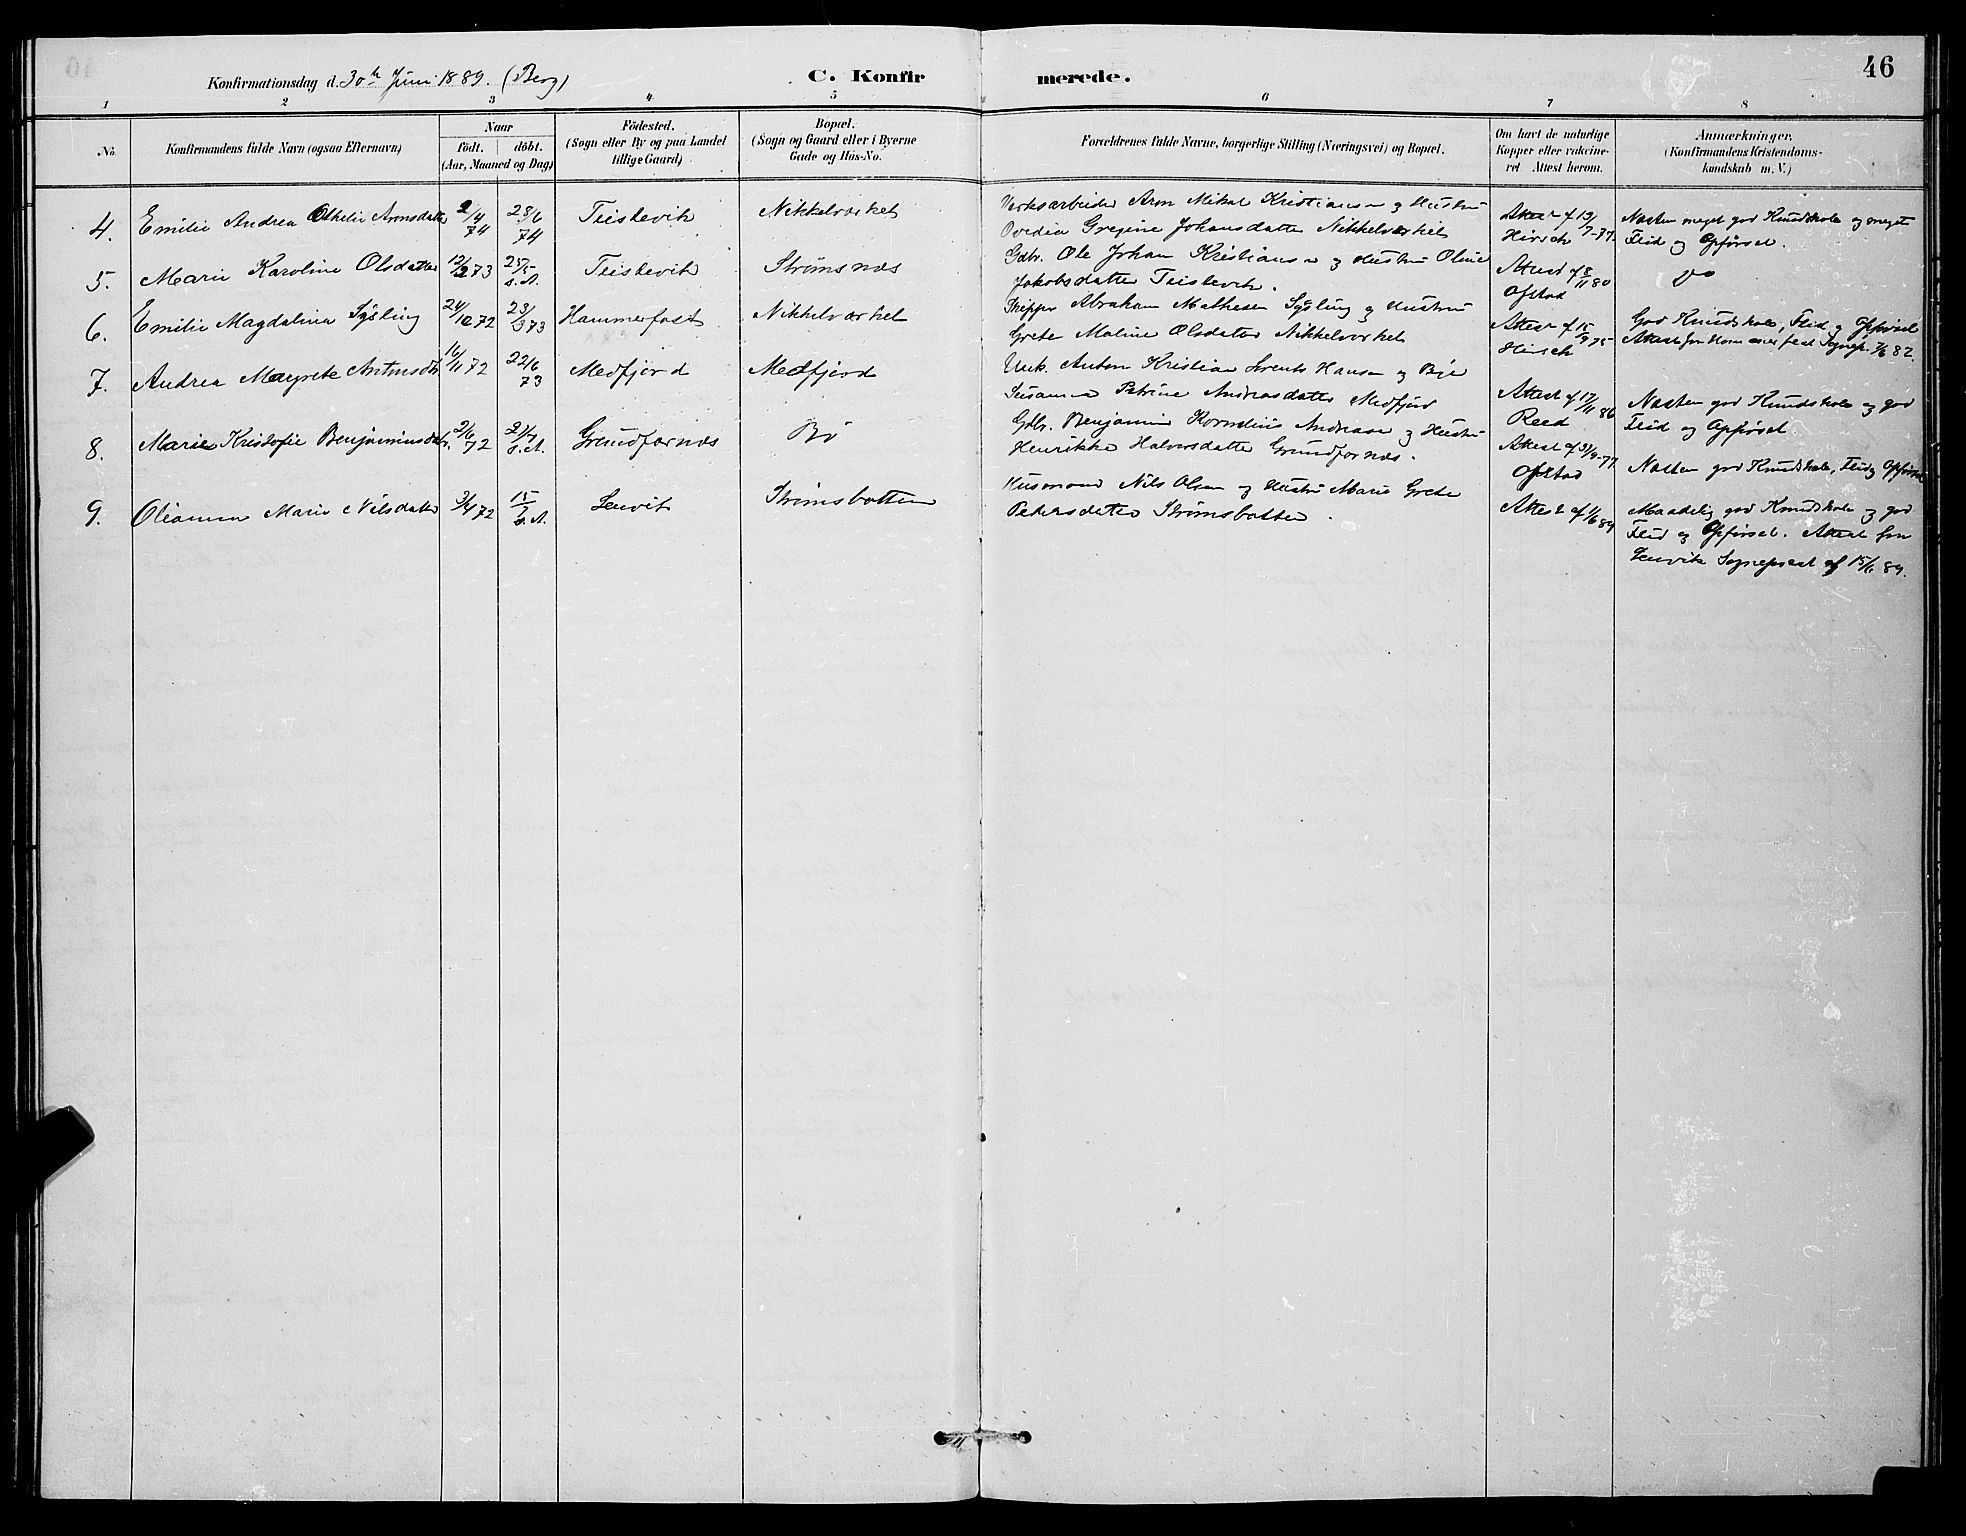 46
Konfirmationsdag d. 30te Juni 1889. (Berg)
C. Konfirmerede.
1 2 3 4 5 6 7 8
No.
Konfirmandens fulde Navn (ogsaa Efternavn)
Naar
födt. döbt.
(Aar, Maaned og Dag)
Födested.
(Sogn eller By og paa Landet
tillige Gaard)
Bopæl.
(Sogn og Gaard eller i Byerne
Gade og Hus-No.
Forældrenes fulde Navne, borgerlige Stilling (Næringsvei) og Bopæl.
Om havt de naturlige
Kopper eller vakcine-
ret. Attest herom.
Anmærkninger,
(Konfirmandens Kristendoms-
kundskab m. V.)
4. Emilie Andrea Othelie Aronsdatter 2/4 74 28/6 74 Teistevik Nikkelværket
Verksarbeider Aron Mikal Kristiansen og Hustru
Ovedia Gregine Johansdatter Nikkelværket
Attest af 13/7-77.
Hirsch
Næsten meget god Kundskab og meget
Flid og Opførsel.
5. Marie Karoline Olsdatter 12/2 73 25/5 s.A. Teistevik Strømsnæs
Gdbr. Ole Johan Kristiansen og Hustru Oline
Jakobsdatter Teistevik.
Attest af 8/11 80
Ofstad
Do
6. Emilie Magdalina Sysling 24/12 72 23/3 73 Hammerfest Nikkelværket
Skipper Abraham Mathesen Sysling og Hustru
Grete Maline Olsdatter Nikkelværket
Attest af 15/9 75
Hirsch
God Kundskab, Flid og Opførsel
Attest fra Hammerfest Sognep. 7/6 82.
7. Andrea Margrete Antonsdtr 16/11 72 22/6 73 Medfjord Medfjord
Unk. Anton Kristian Lorents Hansen og Pige
Susanna Petrine Andreasdatter Medfjord
Attest af 17/11 86
Reed
Næsten god Kundskab og god
Flid og Opførsel.
8. Marie Kristofie Benjaminsdatr. 2/6 72 21/7 s.A. Grundfarnæs Bø
Gdbr. Benjamin Kornelius Andreasen og Hustru
Henrikke Halvorsdatter Grundfarnæs.
Attest af 31/9-77
Ofstad
Næsten god Kundskab, Flid og Opførsel
9. Olianna Marie Nilsdatter 3/4 72 15/7 s.A. Lenvik Strømsbotten
Husmand Nils Olsen og Hustru Marie Grete
Pedersdatter Strømsbotten.
Attest af 1/6 89
Maadelig god Kundskab og god
Flid og Opførsel. Attest fra
Lenvik Sogneprest af 15/6 89.